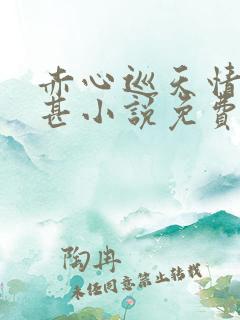 赤心巡天情
甚小說免費
陶冉
未任同意禁止转载